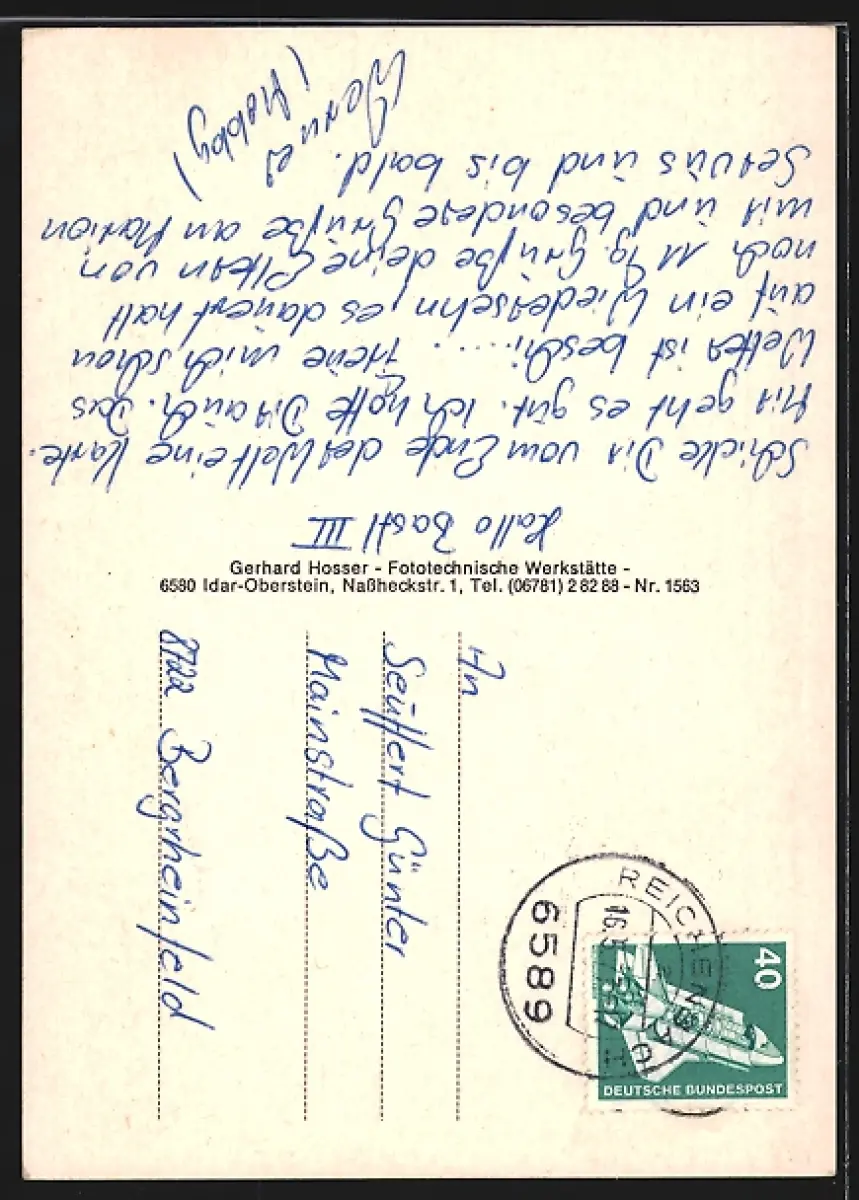 Hallo Bastl III
Schicke Dir vom Ende der Welt eine Karte.
Mir geht es gut. Ich hoffe Dir auch. Das
Wetter ist besch..... freue mich schon
auf ein Wiedersehn, es dauert halt
noch 11 Tg. Grüße deine Eltern von
mir und besondere Grüße an Marion
Servus und bis bald.
Werner
(Hobby)
Gerhard Hosser - Fototechnische Werkstätte -
6580 Idar-Oberstein, Naßheckstr. 1, Tel. (06781) 2 82 88 - Nr. 1563
An
Seuffert Günter
Mainstraße
8722 Bergrheinfeld
REICHENBACH
6589
40
DEUTSCHE BUNDESPOST